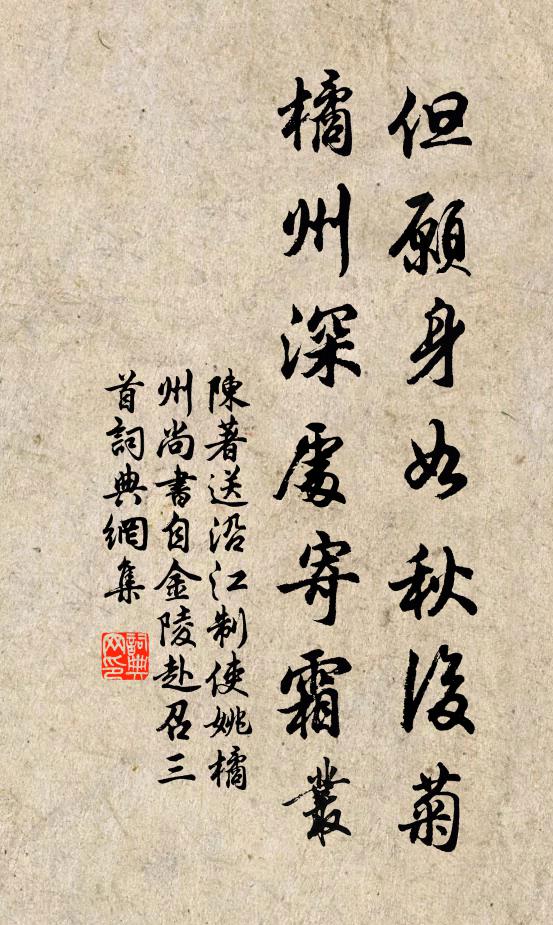 但願身如秋後菊
橘州深處寄霜叢
陳著送沿江制使姚橘
州尚書自金陵赴召三
首詞典網集
詞典
网印